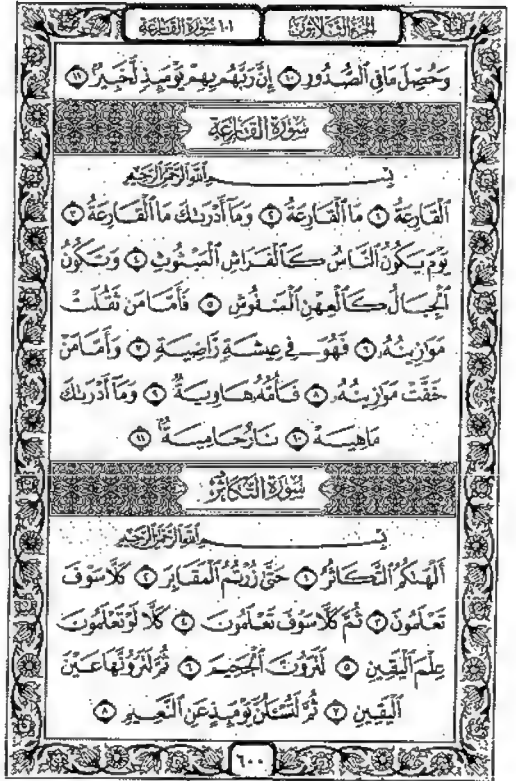 الجزء الثلاثون
١٠١ سورة القارعة
وَحُصِّلَ مَا فِي ٱلصُّدُورِ ١٠ إِنَّ رَبَّهُم بِهِمْ يَوْمَئِذٍ لَّخَبِيرٌۢ ١١
سُورَةُ القَارِعَةِ
بِسْمِ ٱللَّهِ ٱلرَّحْمَٰنِ ٱلرَّحِيمِ
ٱلْقَارِعَةُ ١ مَا ٱلْقَارِعَةُ ٢ وَمَآ أَدْرَىٰكَ مَا ٱلْقَارِعَةُ ٣
يَوْمَ يَكُونُ ٱلنَّاسُ كَٱلْفَرَاشِ ٱلْمَبْثُوثِ ٤ وَتَكُونُ
ٱلْجِبَالُ كَٱلْعِهْنِ ٱلْمَنفُوشِ ٥ فَأَمَّا مَن ثَقُلَتْ
مَوَٰزِينُهُۥ ٦ فَهُوَ فِي عِيشَةٍ رَّاضِيَةٍ ٧ وَأَمَّا مَنْ
خَفَّتْ مَوَٰزِينُهُۥ ٨ فَأُمُّهُۥ هَاوِيَةٌ ٩ وَمَآ أَدْرَىٰكَ
مَا هِيَهْ ١٠ نَارٌ حَامِيَةٌۢ ١١
سُورَةُ التَّكَاثُرِ
بِسْمِ ٱللَّهِ ٱلرَّحْمَٰنِ ٱلرَّحِيمِ
أَلْهَىٰكُمُ ٱلتَّكَاثُرُ ١ حَتَّىٰ زُرْتُمُ ٱلْمَقَابِرَ ٢ كَلَّا سَوْفَ
تَعْلَمُونَ ٣ ثُمَّ كَلَّا سَوْفَ تَعْلَمُونَ ٤ كَلَّا لَوْ تَعْلَمُونَ
عِلْمَ ٱلْيَقِينِ ٥ لَتَرَوُنَّ ٱلْجَحِيمَ ٦ ثُمَّ لَتَرَوُنَّهَا عَيْنَ
ٱلْيَقِينِ ٧ ثُمَّ لَتُسْـَٔلُنَّ يَوْمَئِذٍ عَنِ ٱلنَّعِيمِ ٨
٦٠٠